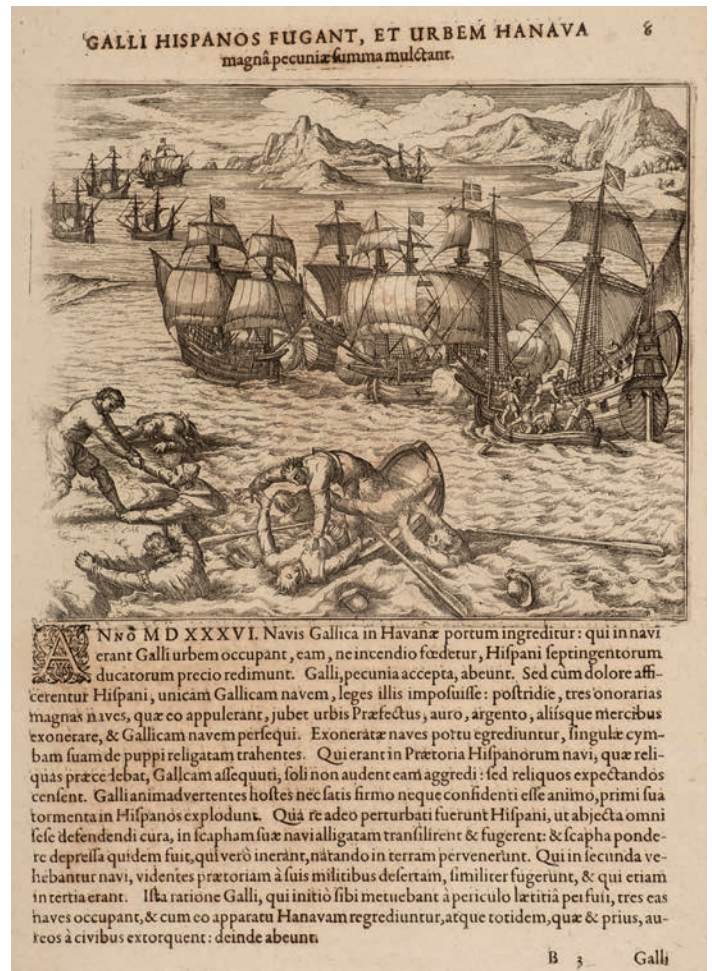 GALLI HISPANOS FUGANT, ET URBEM HANAVA 8
magnâ pecuniæ summa mulctant.
ANNO M D XXXVI. Navis Gallica in Havanæ portum ingreditur: qui in navi
erant Galli urbem occupant, eam, ne incendio fœdetur, Hispani septingentorum
ducatorum precio redimunt. Galli, pecunia accepta, abeunt. Sed cùm dolore affi-
cerentur Hispani, unicam Gallicam navem, leges illis imposuisse: postridie, tres onorarias
magnas naves, quæ eo appulerant, jubet urbis Præfectus, auro, argento, aliisque mercibus
exonerare, & Gallicam navem persequi. Exoneratæ naves portu egrediuntur, singulæ cym-
bam suam de puppi religatam trahentes. Qui erant in Prætoria Hispanorum navi, quæ reli-
quas præcedebat, Gallcam assequuti, soli non audent eam aggredi: sed reliquos expectandos
censent. Galli animadvertentes hostes nec satis firmo neque confidenti esse animo, primi sua
tormenta in Hispanos explodunt. Quâ re adeo perturbati fuerunt Hispani, ut abjecta omni
sese defendendi cura, in scapham suæ navi alligatam transilirent & fugerent: & scapha ponde-
re depressa quidem fuit, qui verò inerant, natando in terram pervenerunt. Qui in secunda ve-
hebantur navi, videntes prætoriam à suis militibus desertam, similiter fugerunt, & qui etiam
in tertia erant. Ista ratione Galli, qui initiò sibi metuebant à periculo lætitiâ perfusi, tres eas
naves occupant, & cum eo apparatu Hanavam regrediuntur, atque totidem, quæ & prius, au-
reos à civibus extorquent: deinde abeunt.
B 3 Galli